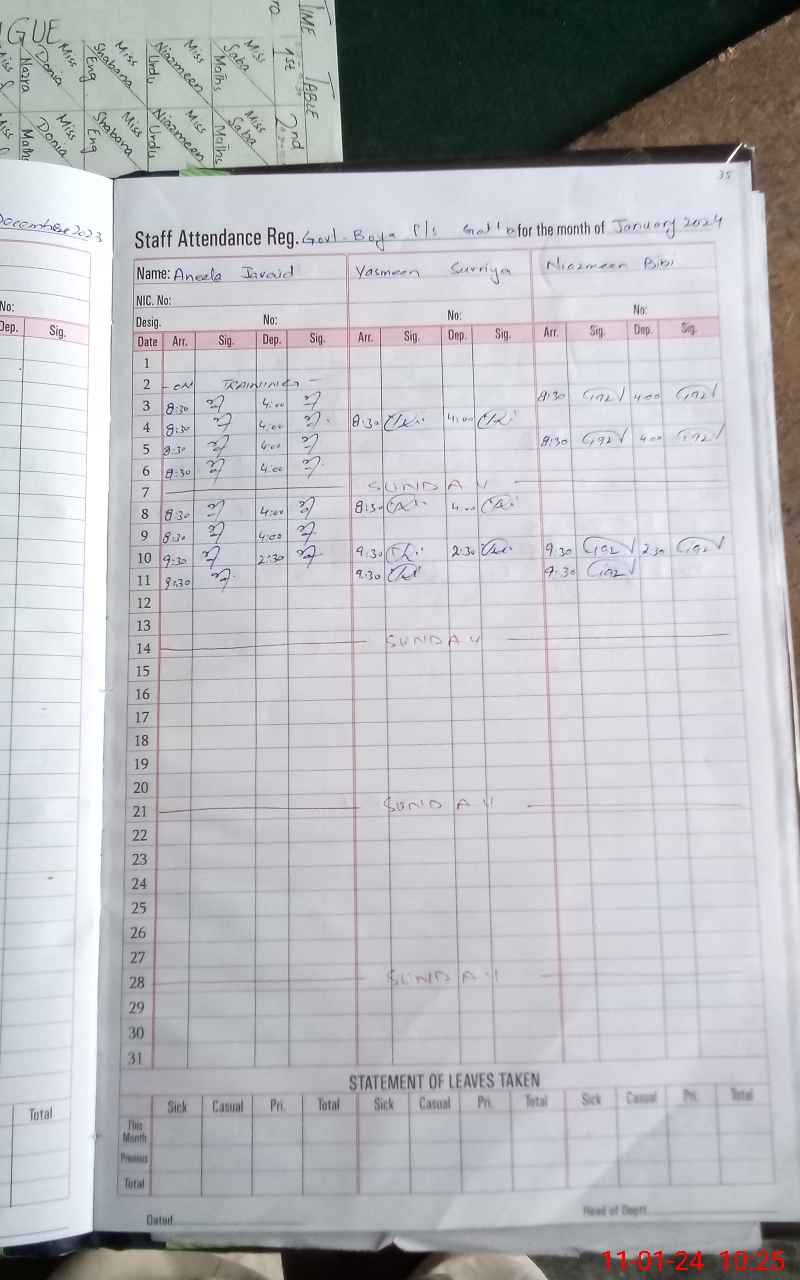 TIME TABLE
1st 2nd
Miss Saba Maths
Miss Niazmeen Urdu
Miss Shabana Eng
Miss Donia Nazra
Miss Saba Maths
Miss Niazmeen Urdu
Miss Shabana Eng
Miss Donia
35
December 2023
No:
Dep. Sig.
Total
Staff Attendance Reg. Govt. Boys P/S for the month of January 2024
Name: Aneela Javaid Yasmeen Surriya Niazmeen Bibi
NIC. No:
Desig. No: No: No:
Date Arr. Sig. Dep. Sig. Arr. Sig. Dep. Sig. Arr. Sig. Dep. Sig.
1
2 - ON TRAINING -
3 8:30 4:00 8:30 4:00
4 8:30 4:00 8:30 4:00
5 8:30 4:00 8:30 4:00
6 8:30 4:00
7 SUNDAY
8 8:30 4:00 8:30 4:00
9 8:30 4:00
10 9:30 2:30 9:30 2:30 9:30 2:30
11 9:30 9:30 9:30
12
13
14 SUNDAY
15
16
17
18
19
20
21 SUNDAY
22
23
24
25
26
27
28 SUNDAY
29
30
31
STATEMENT OF LEAVES TAKEN
Sick Casual Pri. Total Sick Casual Pri. Total Sick Casual Pri. Total
This Month
Previous
Total
Dated Head of Deptt.
11-01-24 10:25